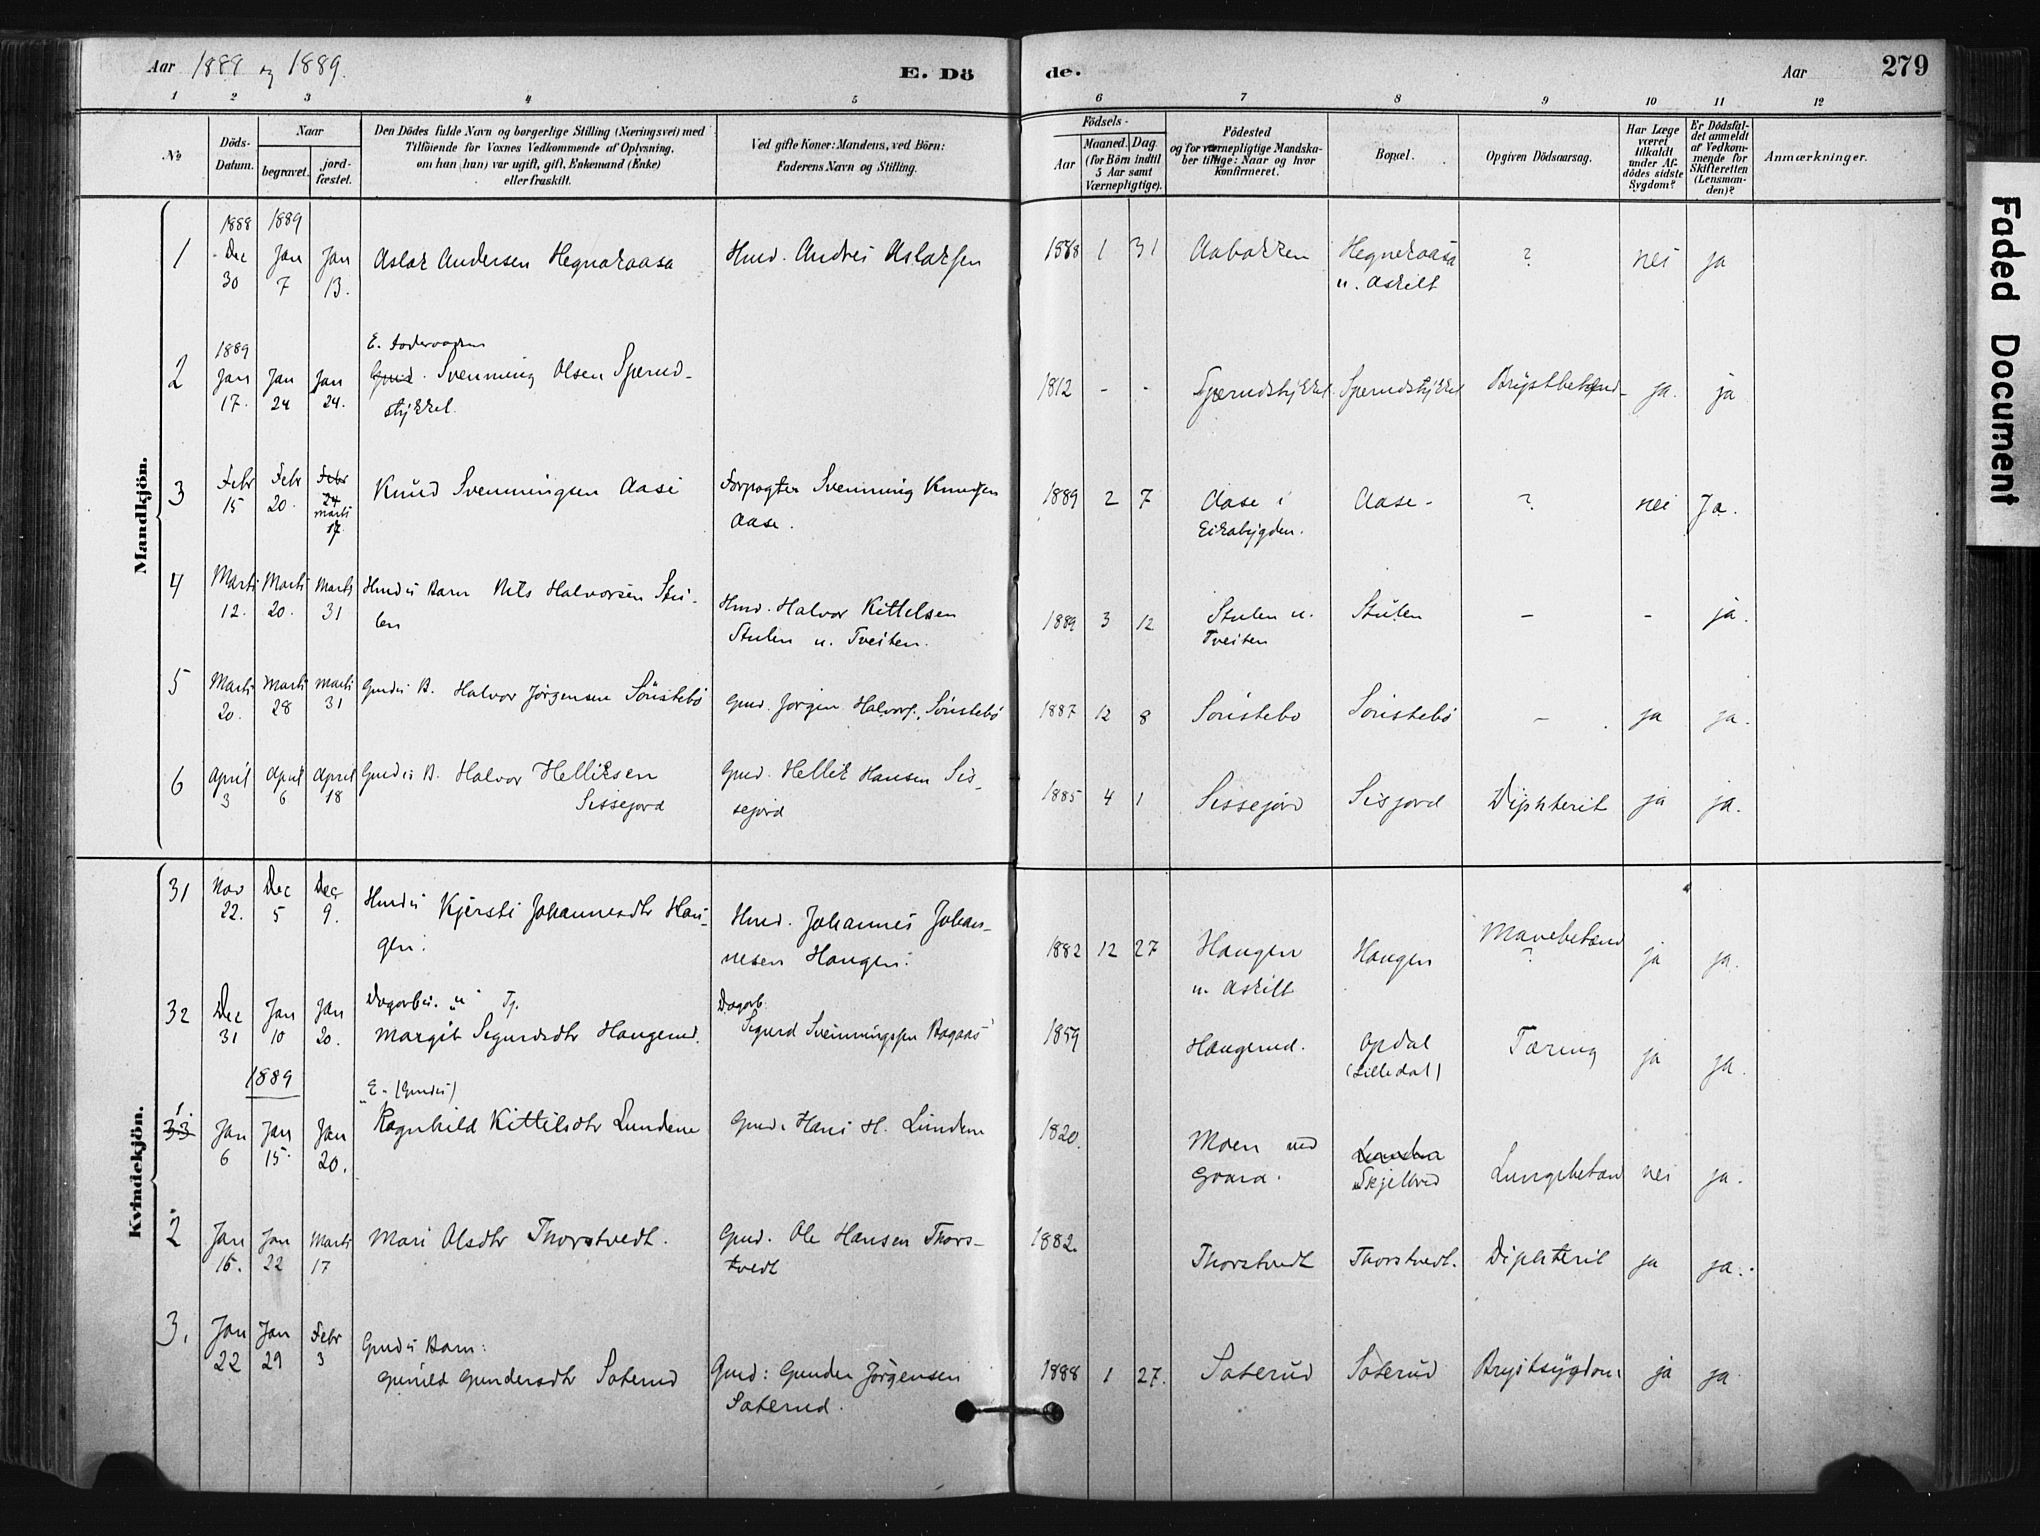 Aar 1889 og 1889.
E. Döde.
Aar
279
1 2 3 4 5 6 7 8 9 10 11 12
№
Döds-Datum.
Naar
begravet.
jordfæstet.
Den Dödes fulde Navn og borgerlige Stilling (Næringsvei) med
Tilföiende for Voxnes Vedkommende af Oplysning,
om han (hun) var ugift, gift, Enkemand (Enke)
eller fraskilt.
Ved gifte Koner: Mandens, ved Börn:
Faderens Navn og Stilling.
Födsels-
Aar
Maaned. Dag.
(for Börn indtil
5 Aar samt
Værnepligtige).
Födested
og for værnepligtige Mandska-
ber tillige: Naar og hvor
konfirmeret.
Bopæl.
Opgiven Dödsaarsag.
Har Læge
været
tilkaldt
under Af-
dödes sidste
Sygdom?
Er Dödsfal-
det anmeldt
af Vedkom-
mende for
Skifteretten
(Lensman-
den)?
Anmærkninger.
Mandkjön.
1 1888 Dec 30 1889 Jan 7 Jan 13. Aslak Andersen Hegnaraasa Hmd. Andres Aslaksen 1888 1 31 Aabakken Hegneraasa u. Askilt ? nei ja
2 1889 Jan 17. Jan 24 Jan 24. E. Foderaadsm Gmd. Svenning Olsen Sperud-
stykket. 1812 - - Sperudstykket Sperudstykket Brystbetænd- ja. ja
3 Febr 15 Febr 20. Febr 24 Marts 17. Knud Svenningsen Aase Forpagter Svenning Knudsen
Aase. 1889 2 7 Aase i
Eikabygden. Aase - ? nei Ja.
4 Marts 12. Marts 20. Marts 31 Hmds Barn Nils Halvorsen Stu-
len Hmd. Halvor Kittelsen
Stulen u. Tveiten. 1889 3 12 Stulen u.
Tveiten Stulen - - ja.
5 Marts 20. Marts 28 Marts 31 Gmds B. Halvor Jørgensen Sönstebö Gmd. Jørgen Halvors. Sönstebö 1887 12 8 Sönstebo Sönstebö - ja ja.
6 April 3 April 6 April 18 Gmds B. Halvor Helliksen
Sissejord Gmd. Hellik Hansen Sis-
sejord 1885 4 1 Sissejord Sisjord Diphterit ja ja.
Kvindekjön.
31 Nov 22. Dec 5 Dec 9. Hmds Kjersti Johannesdtr Hau-
gen. Hmd. Johannes Johan-
nesen Haugen. 1882 12 27 Haugen
u. Askilt Haugen Mavebetænd
? ja ja.
32 Dec 31 Jan 10 Jan 20. Dagarb.
Margit Sigurdsdtr Haugerud. Dagarb.
Sigurd Svenningssen Bagaas 1859 Haugerud. Opdal
(Lilledal) Tæring ja ja.
1889
33 1 Jan 6 Jan 15. Jan 20. E. (Gmds)
Ragnhild Kittilsdtr Lundene Gmd. Hans H. Lundene 1820. Moen ned
Graard. Skjelbred Lungebetæn nei ja.
2 Jan 16. Jan 22 Marts 17 Mari Olsdtr Thorstvedt. Gmd. Ole Hansen Thors-
tvedt 1882. Thorstvedt Thorstvedt. Diphterit ja ja.
3. Jan 22 Jan 29 Febr 3 Gmds Barn:
Gunild Gundersdtr Saterud Gmd: Gunder Jörgensen
Saterud. 1888 1 27. Saterud Saterud Brystsygdom ja ja
Faded Document